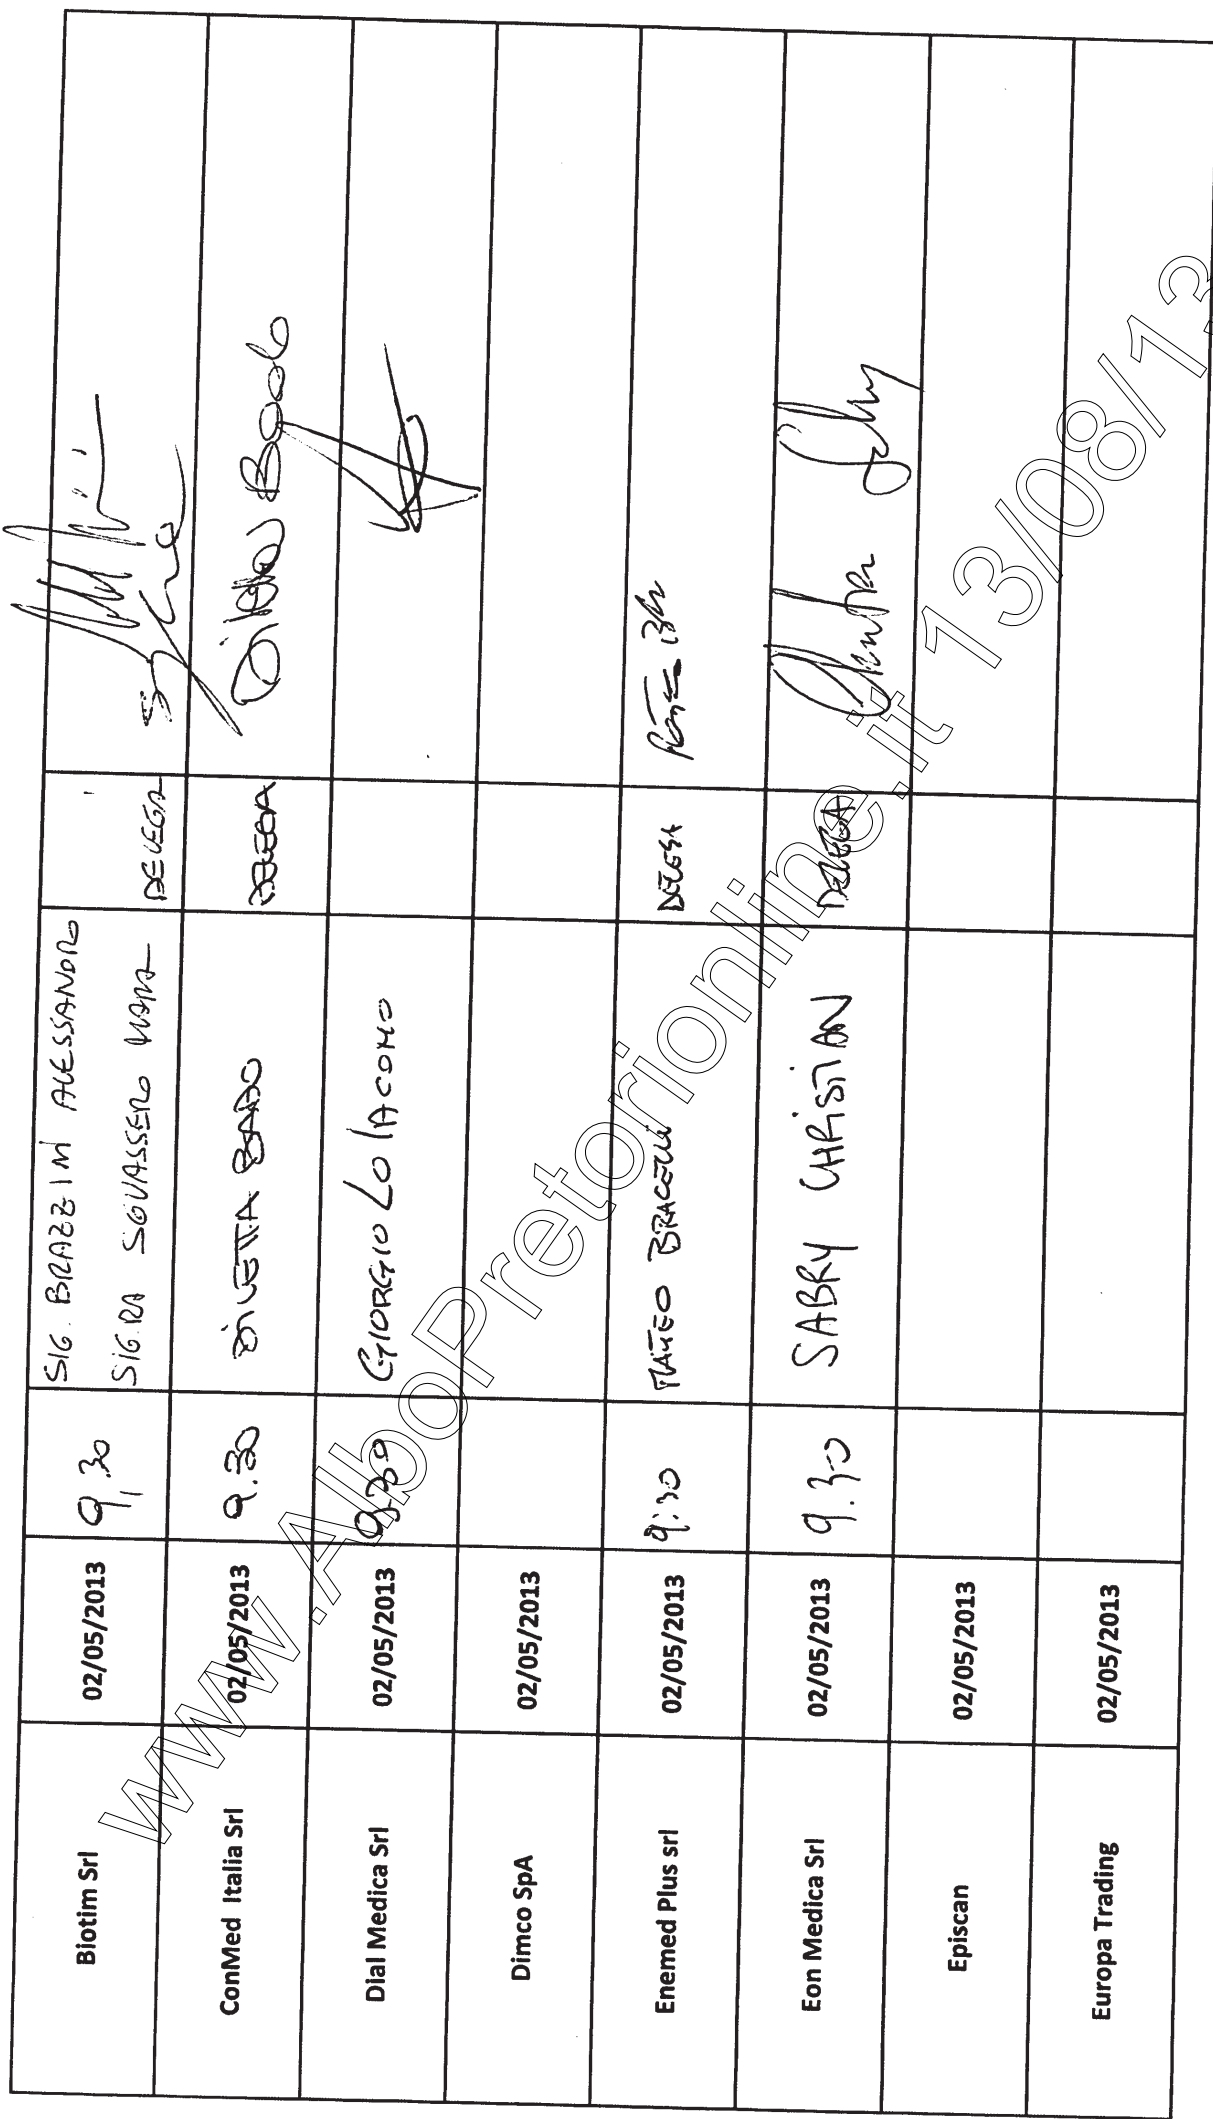 Biotim Srl 02/05/2013 9,30 SIG. BRAZZINI ALESSANDRO
SIG.RA SQUASSERO MARA DELEGA
ConMed Italia Srl 02/05/2013 9.30 DILETTA BADO DELEGA Diletta Bado
Dial Medica Srl 02/05/2013 9.30 GIORGIO LO IACOMO
Dimco SpA 02/05/2013
Enemed Plus srl 02/05/2013 9:30 MATTEO BRACELLI DELEGA
Eon Medica Srl 02/05/2013 9.30 SABRY CHRISTIAN DELEGA
Episcan 02/05/2013
Europa Trading 02/05/2013
www.AlboPretorionline.it 13/08/13